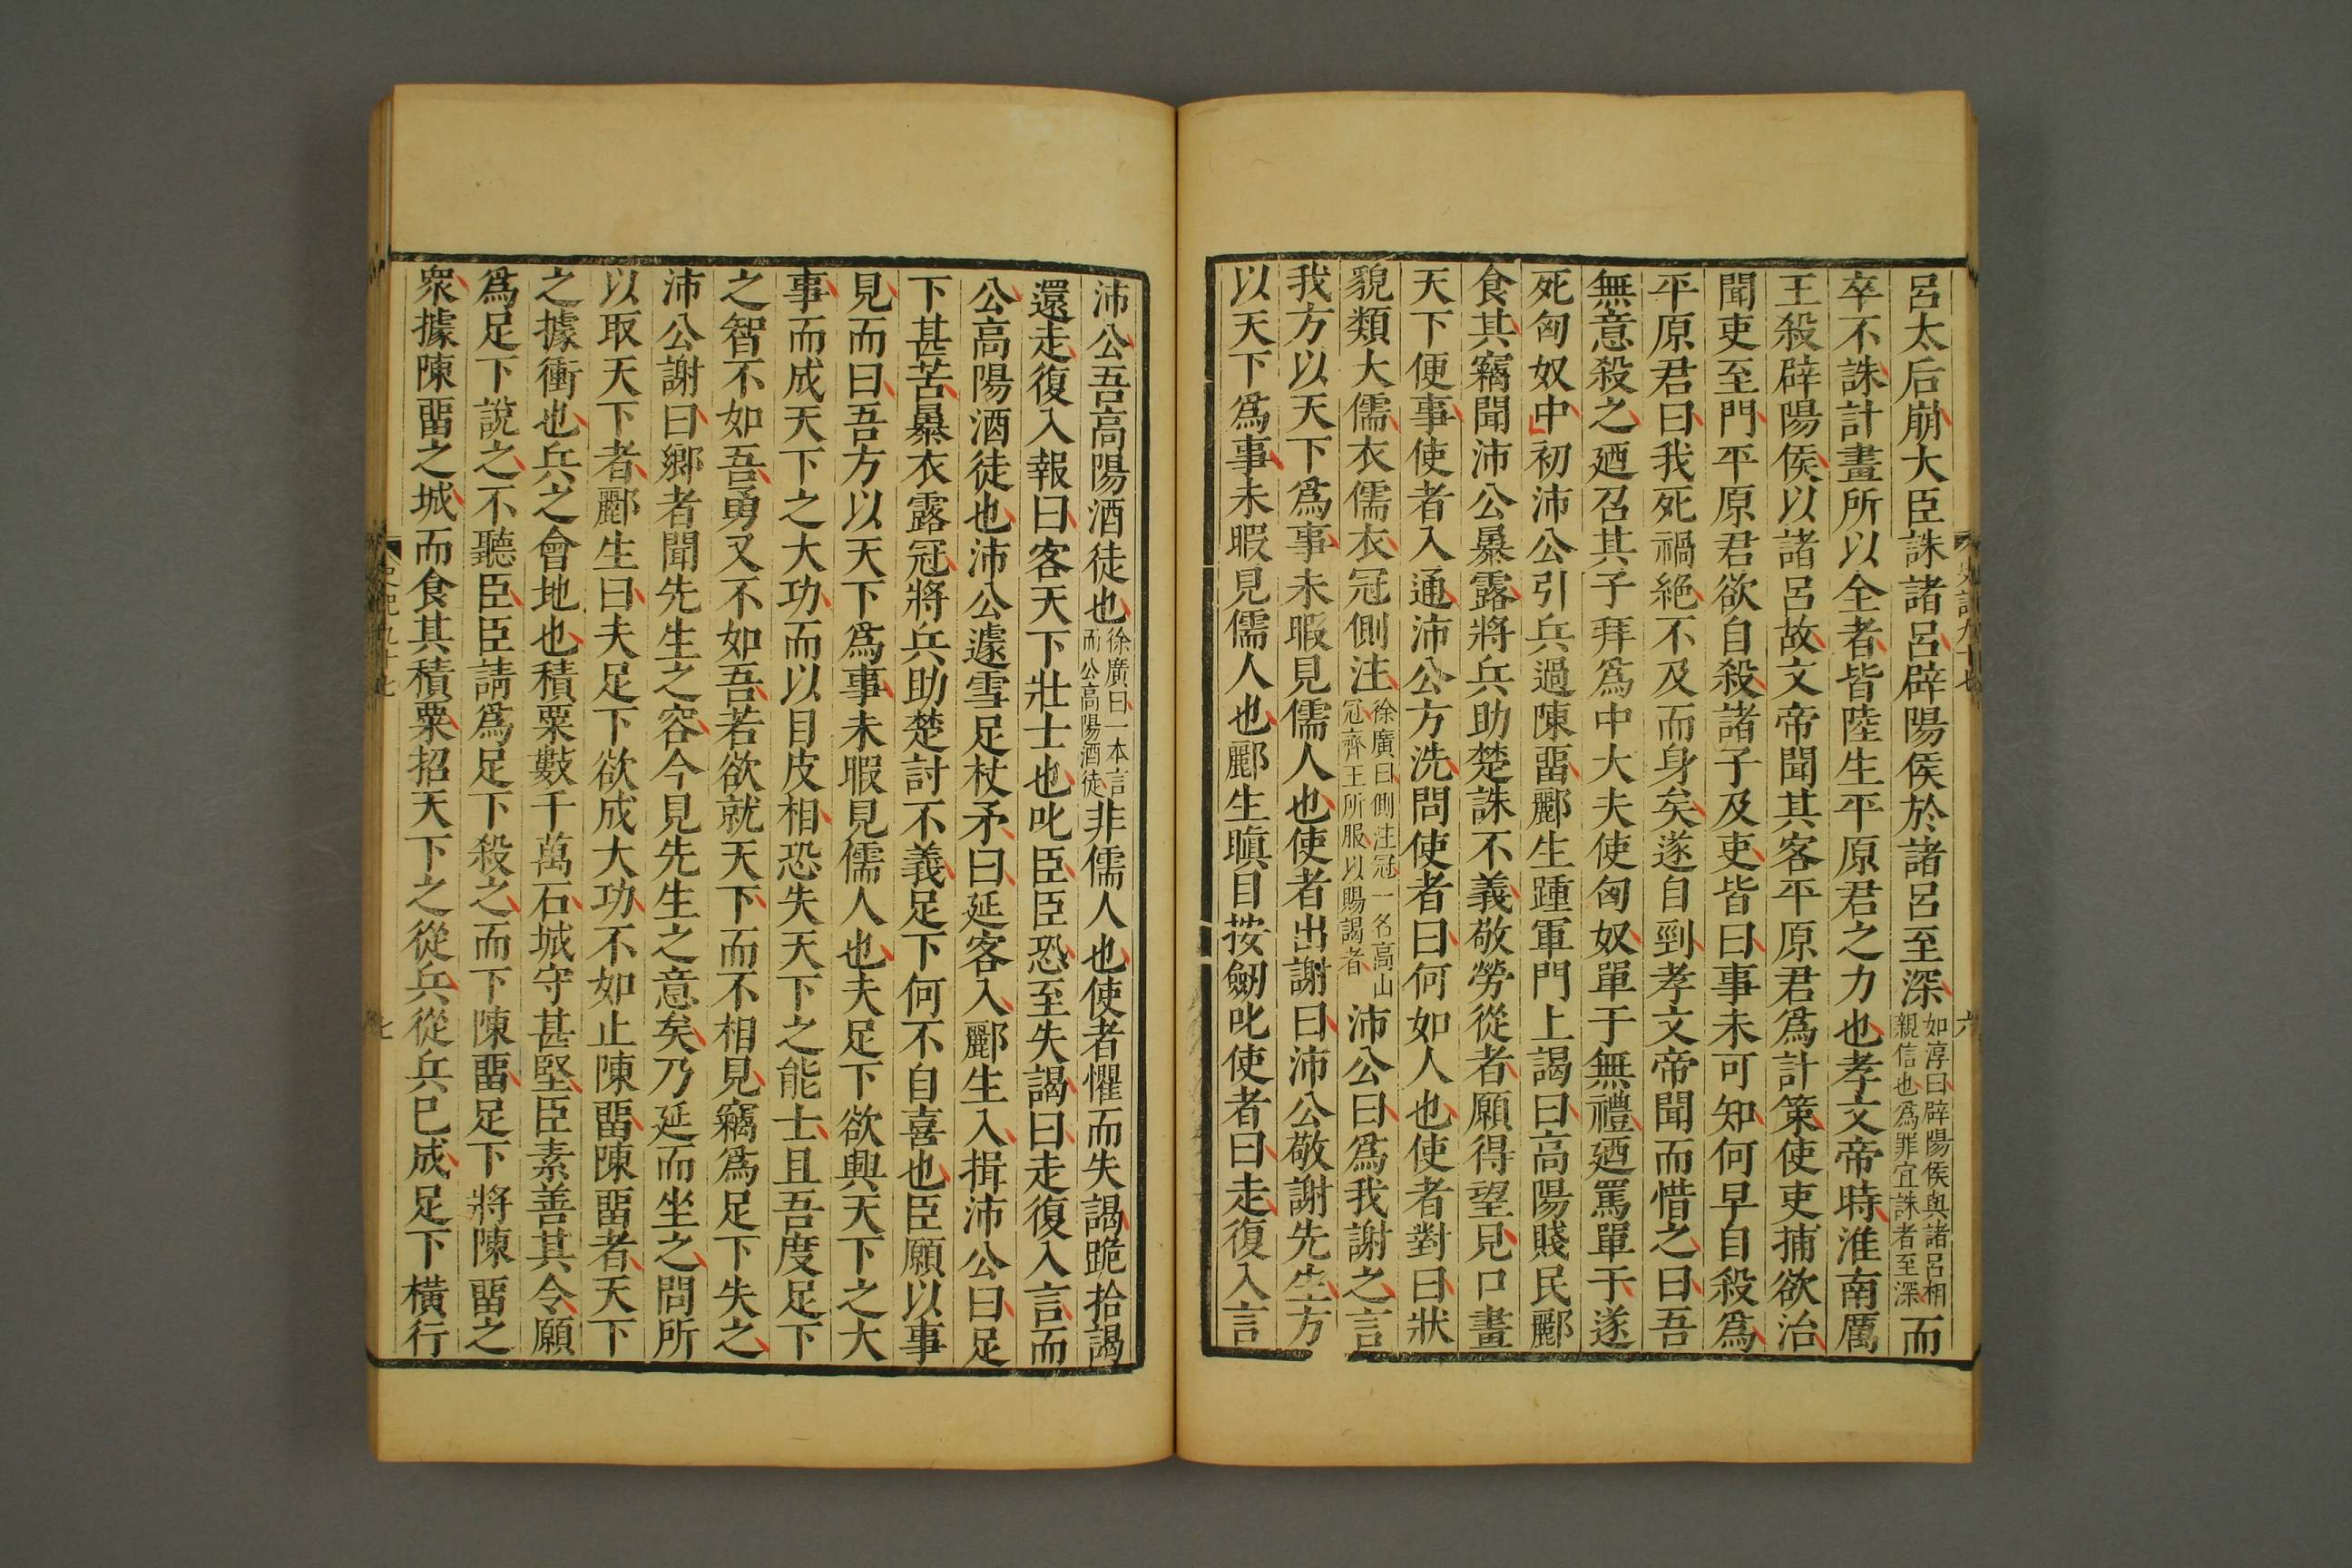 呂太后崩大臣誅諸呂辟陽侯於諸呂至深如淳曰辟陽侯與諸呂相親信也爲罪宜誅者至深而
卒不誅計畫所以全者皆陸生平原君之力也孝文帝時淮南厲
王殺辟陽侯以諸呂故文帝聞其客平原君爲計策使吏捕欲治
聞吏至門平原君欲自殺諸子及吏皆曰事未可知何早自殺爲
平原君曰我死禍絶不及而身矣遂自剄孝文帝聞而惜之曰吾
無意殺之廼召其子拜爲中大夫使匈奴單于無禮廼罵單于遂
死匈奴中初沛公引兵過陳畱酈生踵軍門上謁曰高陽賤民酈
食其竊聞沛公暴露將兵助楚誅不義敬勞從者願得望見口畫
天下便事使者入通沛公方洗問使者曰何如人也使者對曰狀
貌類大儒衣儒衣冠側注徐廣曰側注冠一名高山冠齊王所服以賜謁者沛公曰爲我謝之言
我方以天下爲事未暇見儒人也使者出謝曰沛公敬謝先生方
以天下爲事未暇見儒人也酈生瞋目按劒叱使者曰走復入言
史記九十七
六
沛公吾高陽酒徒也徐廣曰一本言而公高陽酒徒非儒人也使者懼而失謁跪拾謁
還走復入報曰客天下壯士也叱臣臣恐至失謁曰走復入言而
公高陽酒徒也沛公遽雪足杖矛曰延客入酈生入揖沛公曰足
下甚苦暴衣露冠將兵助楚討不義足下何不自喜也臣願以事
見而曰吾方以天下爲事未暇見儒人也夫足下欲興天下之大
事而成天下之大功而以目皮相恐失天下之能士且吾度足下
之智不如吾勇又不如吾若欲就天下而不相見竊爲足下失之
沛公謝曰鄉者聞先生之容今見先生之意矣乃延而坐之問所
以取天下者酈生曰夫足下欲成大功不如止陳畱陳畱者天下
之據衝也兵之會地也積粟數千萬石城守甚堅臣素善其令願
爲足下說之不聽臣臣請爲足下殺之而下陳畱足下將陳畱之
衆據陳畱之城而食其積粟招天下之從兵從兵已成足下橫行
史記九十七
七